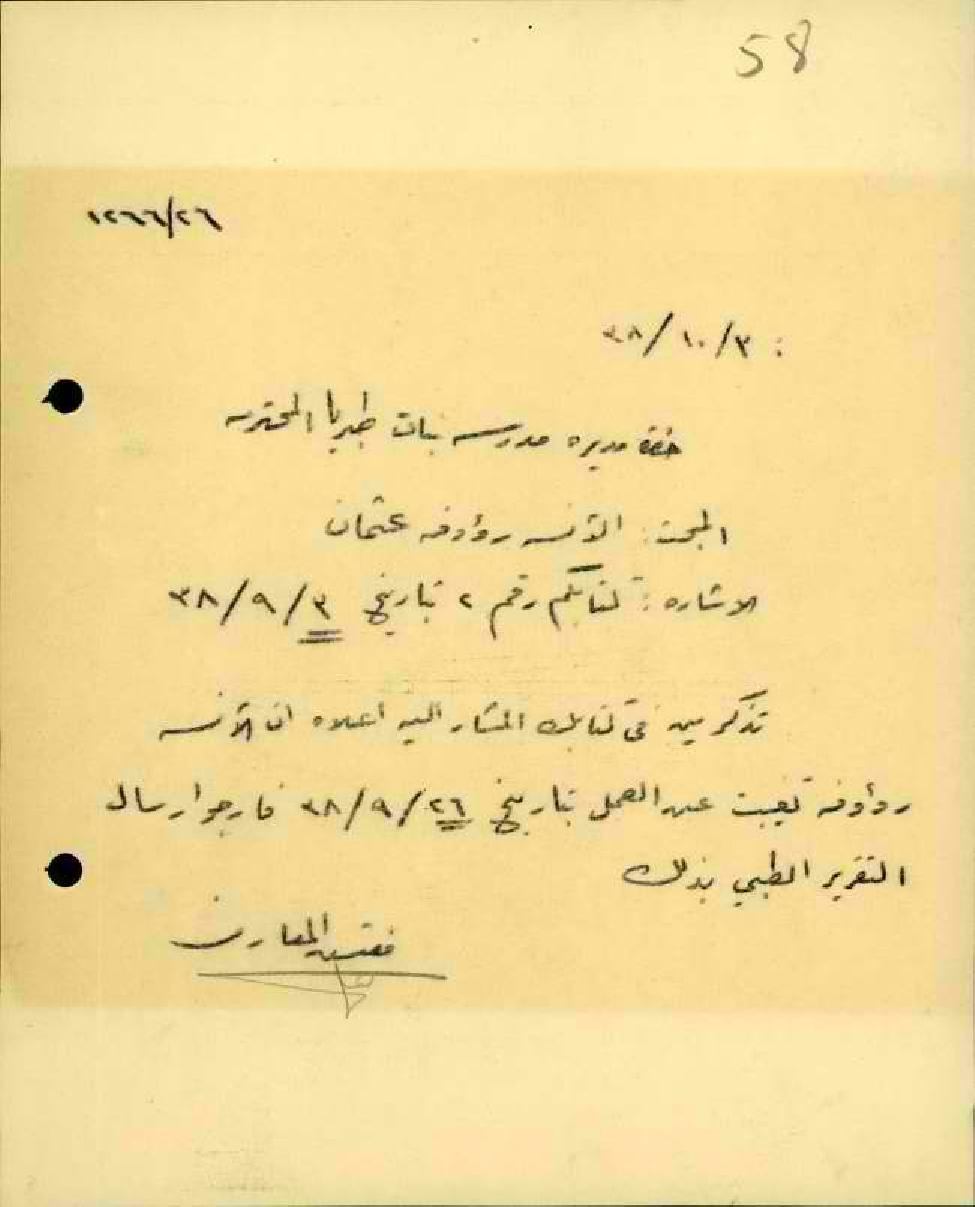 58
١٢٦٦/٢٦
: ٣٨/١٠/٣
حضرة مديره مدرسه بنات طبريا المحترمه
المبحث : الآنسه رؤوفه عثمان
الاشاره : كتابكم رقم ٢ تاريخ ٣٨/٩/٣
تذكرين في كتابك المشار اليه اعلاه ان الآنسه
رؤوفه تغيبت عن العمل بتاريخ ٣٨/٩/٢٦ فارجو ارسال
التقرير الطبي بذلك
مفتش المعارف